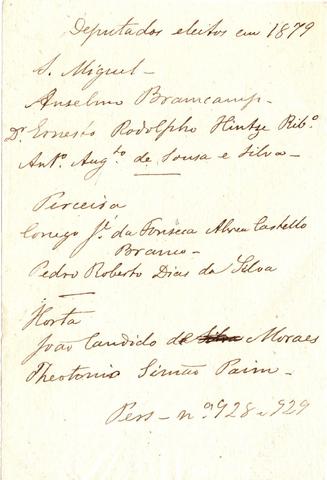 Deputados eleitos em 1879
S. Miguel -
Anselmo Bramcamp -
Dr. Ernesto Rodolpho Hintze Ribº
Antº. Augto de Sousa e Silva -
Terceira
Conego Jé. da Fonseca Abreu Castello
Branco -
Pedro Roberto Dias da Silva
Horta
João Candido de Moraes
Theotonio Simão Paim -
Pers - nos 928 e 929